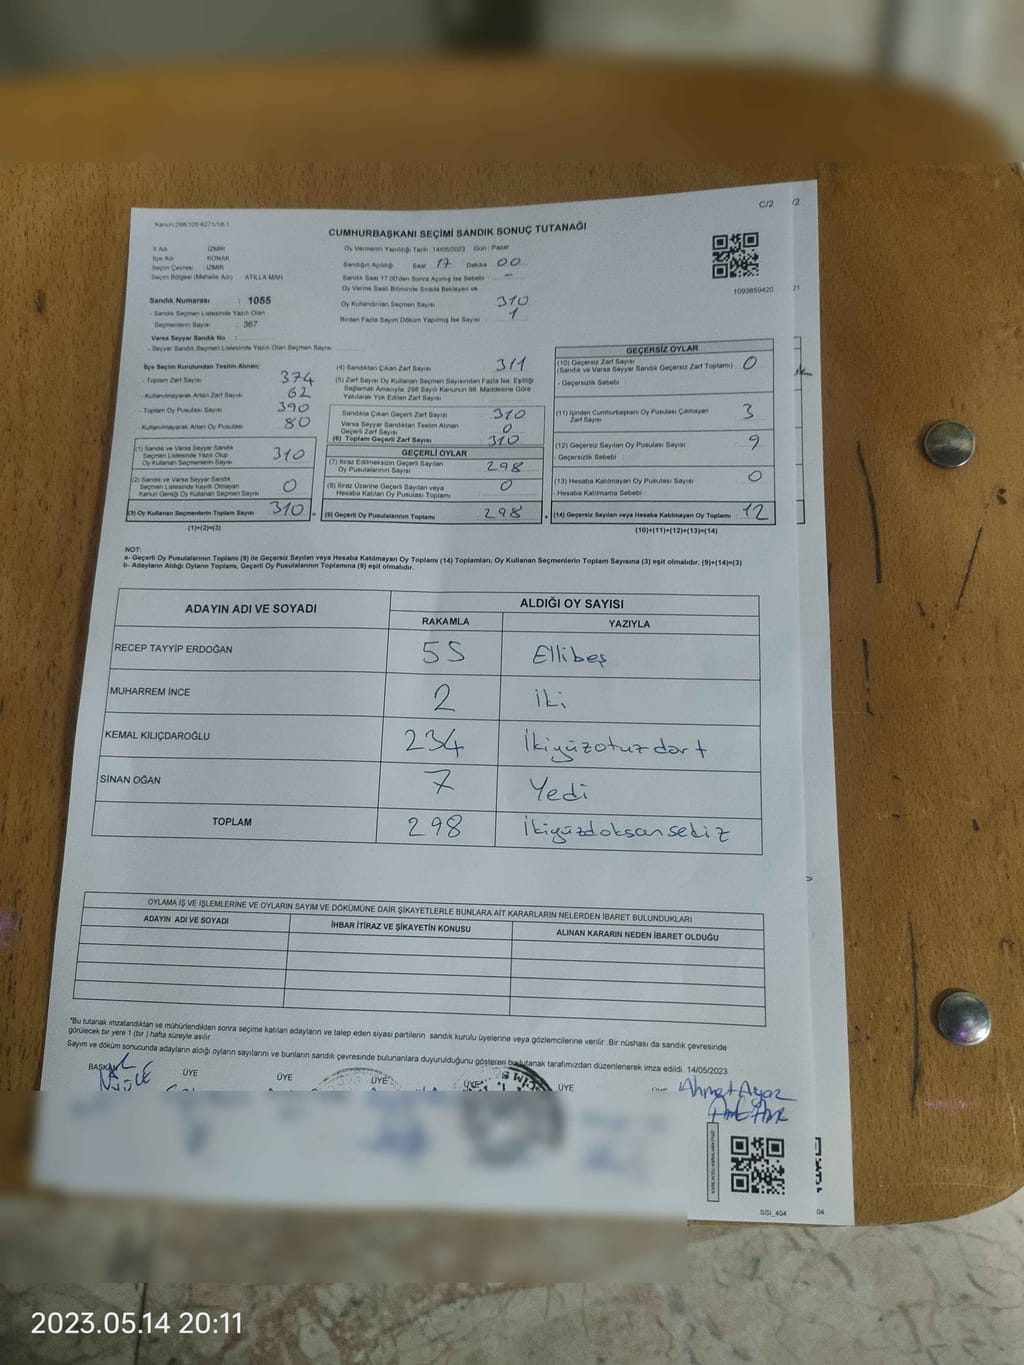 C/2
/2
Kanun:298/105:6271/16:1
CUMHURBAŞKANI SEÇİMİ SANDIK SONUÇ TUTANAĞI
İl Adı : İZMİR
İlçe Adı : KONAK
Seçim Çevresi : İZMİR
Seçim Bölgesi (Mahalle Adı) : ATİLLA MAH
Sandık Numarası : 1055
- Sandık Seçmen Listesinde Yazılı Olan
Seçmenlerin Sayısı : 367
Varsa Seyyar Sandık No :
- Seyyar Sandık Seçmen Listesinde Yazılı Olan Seçmen Sayısı
Oy Vermenin Yapıldığı Tarih : 14/05/2023 Gün : Pazar
Sandığın Açıldığı Saat 17 Dakika 00
Sandık Saat 17:00'den Sonra Açılmış İse Sebebi : -
Oy Verme Saati Bitiminde Sırada Bekleyen ve
Oy Kullandırılan Seçmen Sayısı 310
Birden Fazla Sayım Döküm Yapılmış İse Sayısı 1
1093859420
21
İlçe Seçim Kurulundan Teslim Alınan;
- Toplam Zarf Sayısı 374
- Kullanılmayarak Artan Zarf Sayısı 62
- Toplam Oy Pusulası Sayısı 390
- Kullanılmayarak Artan Oy Pusulası 80
(1) Sandık ve Varsa Seyyar Sandık
Seçmen Listesinde Yazılı Olup
Oy Kullanan Seçmenlerin Sayısı 310
(2) Sandık ve Varsa Seyyar Sandık
Seçmen Listesinde Kayıtlı Olmayan
Kanun Gereği Oy Kullanan Seçmen Sayısı 0
(3) Oy Kullanan Seçmenlerin Toplam Sayısı 310
(1)+(2)=(3)
(4) Sandıktan Çıkan Zarf Sayısı 311
(5) Zarf Sayısı Oy Kullanan Seçmen Sayısından Fazla İse, Eşitliği
Sağlamak Amacıyla, 298 Sayılı Kanunun 98. Maddesine Göre
Yakılarak Yok Edilen Zarf Sayısı
Sandıkta Çıkan Geçerli Zarf Sayısı 310
Varsa Seyyar Sandıktan Teslim Alınan
Geçerli Zarf Sayısı 0
(6) Toplam Geçerli Zarf Sayısı 310
GEÇERLİ OYLAR
(7) İtiraz Edilmeksizin Geçerli Sayılan
Oy Pusulalarının Sayısı 298
(8) İtiraz Üzerine Geçerli Sayılan veya
Hesaba Katılan Oy Pusulası Toplamı 0
(9) Geçerli Oy Pusulalarının Toplamı 298
GEÇERSİZ OYLAR
(10) Geçersiz Zarf Sayısı
(Sandık ve Varsa Seyyar Sandık Geçersiz Zarf Toplamı) 0
- Geçersizlik Sebebi
(11) İçinden Cumhurbaşkanı Oy Pusulası Çıkmayan
Zarf Sayısı 3
(12) Geçersiz Sayılan Oy Pusulası Sayısı 9
- Geçersizlik Sebebi :
(13) Hesaba Katılmayan Oy Pusulası Sayısı 0
- Hesaba Katılmama Sebebi
(14) Geçersiz Sayılan veya Hesaba Katılmayan Oy Toplamı 12
(10)+(11)+(12)+(13)=(14)
NOT:
a- Geçerli Oy Pusulalarının Toplamı (9) ile Geçersiz Sayılan veya Hesaba Katılmayan Oy Toplamı (14) Toplamları, Oy Kullanan Seçmenlerin Toplam Sayısına (3) eşit olmalıdır. (9)+(14)=(3)
b- Adayların Aldığı Oyların Toplamı, Geçerli Oy Pusulalarının Toplamına (9) eşit olmalıdır.
ADAYIN ADI VE SOYADI
ALDIĞI OY SAYISI
RAKAMLA YAZIYLA
RECEP TAYYİP ERDOĞAN 55 Ellibeş
MUHARREM İNCE 2 iki
KEMAL KILIÇDAROĞLU 234 ikiyüzotuzdört
SİNAN OĞAN 7 Yedi
TOPLAM 298 ikiyüzdoksansekiz
OYLAMA İŞ VE İŞLEMLERİNE VE OYLARIN SAYIM VE DÖKÜMÜNE DAİR ŞİKAYETLERLE BUNLARA AİT KARARLARIN NELERDEN İBARET BULUNDUKLARI
ADAYIN ADI VE SOYADI İHBAR İTİRAZ VE ŞİKAYETİN KONUSU ALINAN KARARIN NEDEN İBARET OLDUĞU
"Bu tutanak imzalandıktan ve mühürlendikten sonra seçime katılan adayların ve talep eden siyasi partilerin sandık kurulu üyelerine veya gözlemcilerine verilir .Bir nüshası da sandık çevresinde
görülecek bir yere 1 (bir ) hafta süreyle asılır
Sayım ve döküm sonucunda adayların aldığı oyların sayılarını ve bunların sandık çevresinde bulunanlara duyurulduğunu gösteren bu tutanak tarafımızdan düzenlenerek imza edildi. 14/05/2023
BAŞKAN ÜYE ÜYE ÜYE ÜYE ÜYE
Ahmet Ayaz
SSİ_404
04
2023.05.14 20:11